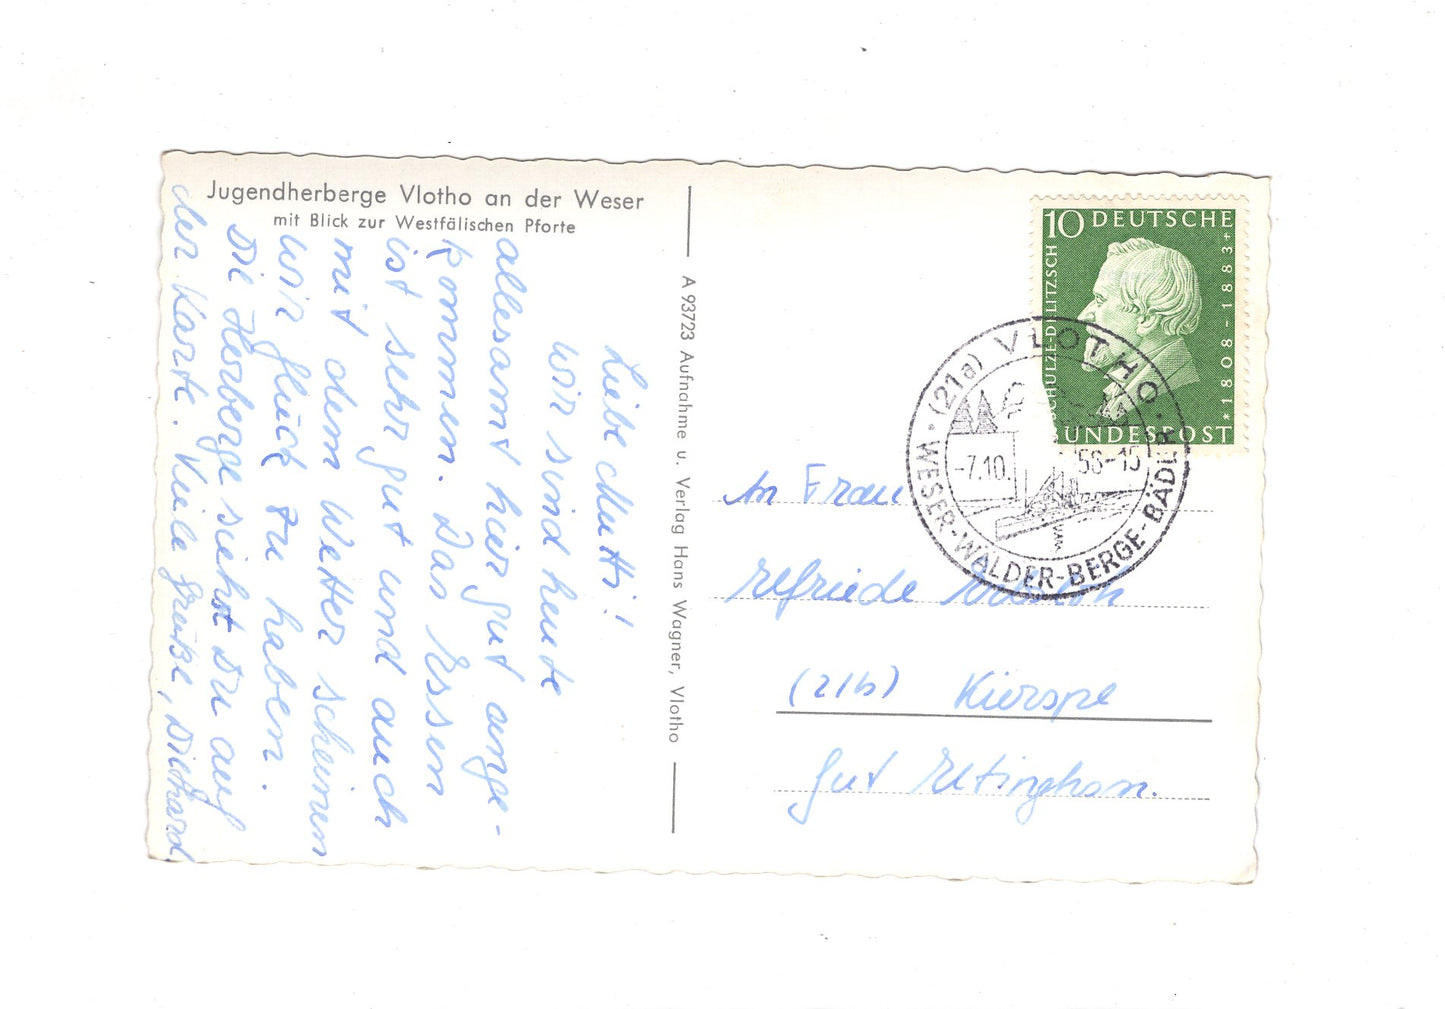 Jugendherberge Vlotho an der Weser
mit Blick zur Westfälischen Pforte
Liebe Mutti!
Wir sind heute
allesamt hier gut ange-
kommen. Das Essen
ist sehr gut und auch
mit dem Wetter scheinen
wir Glück zu haben.
Die Herberge siehst Du auf
der Karte. Viele Grüße, Diethard
A 93723 Aufnahme u. Verlag Hans Wagner, Vlotho
10 DEUTSCHE
SCHULZE-DELITZSCH
* 1808-1883 +
BUNDESPOST
(21a) VLOTHO
-7.10. 58-15
WESER-WÄLDER-BERGE-BÄDER
An Frau
Elfriede
(21b) Kierspe
Gut